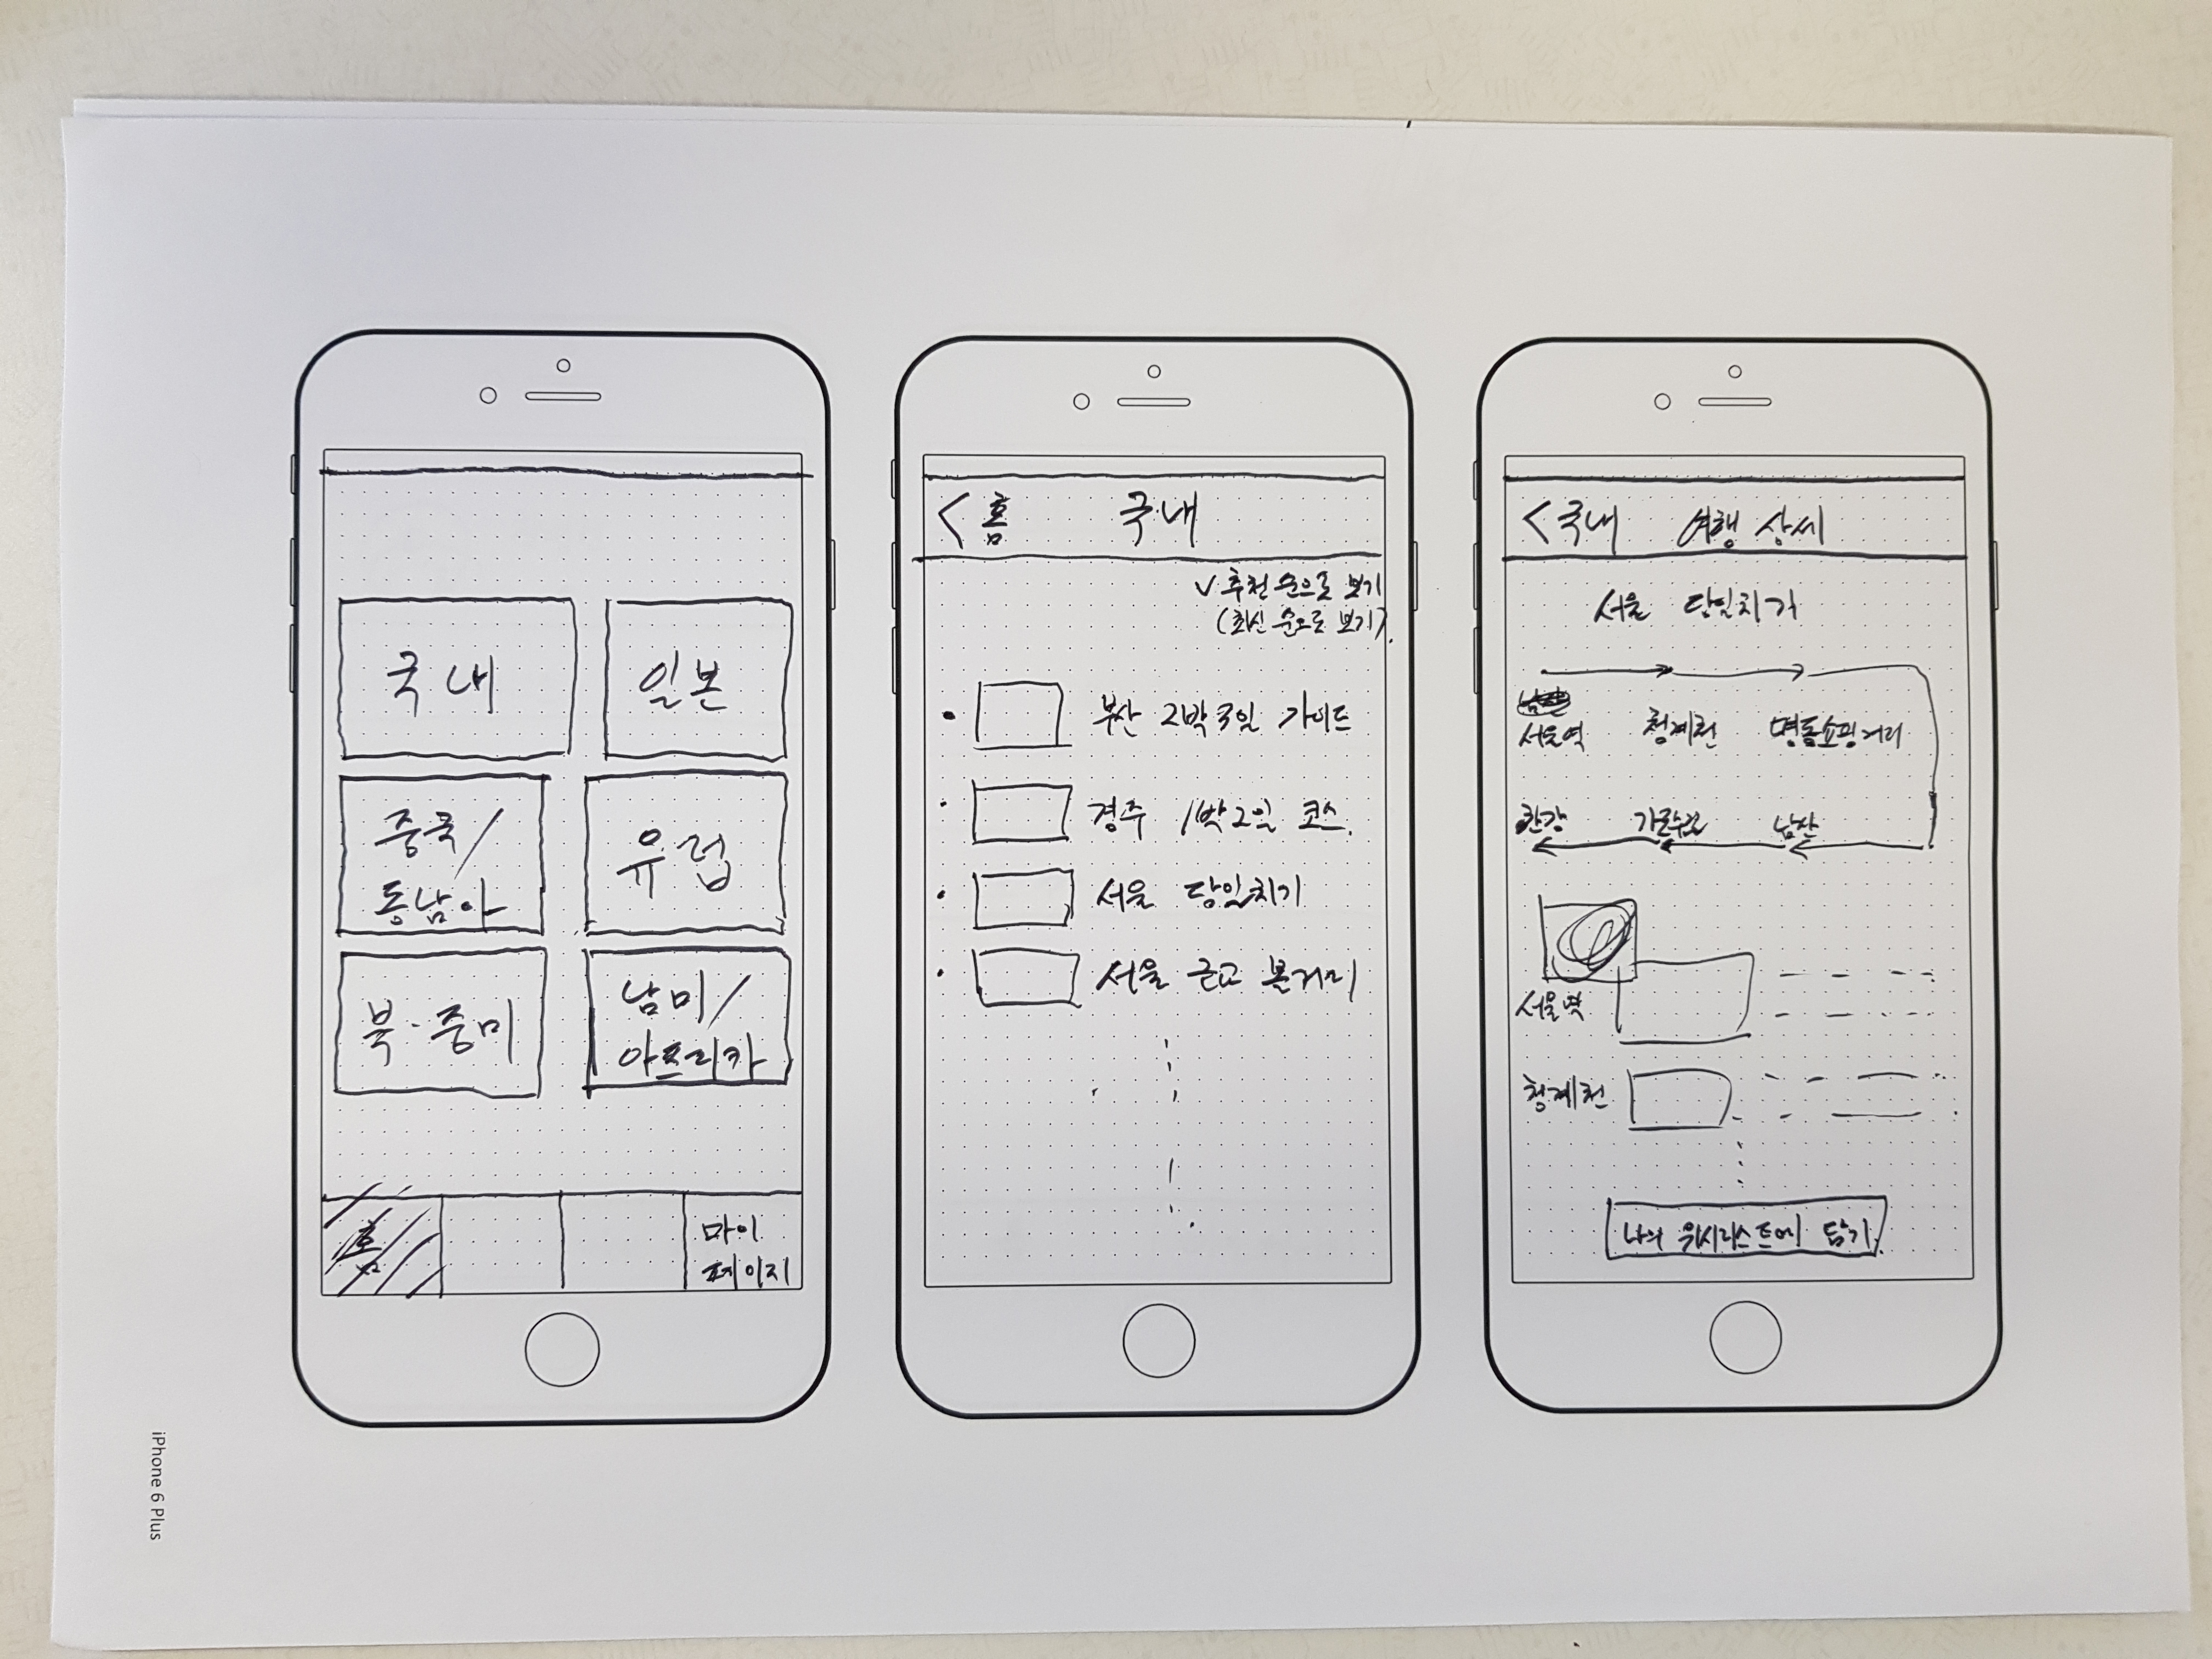 국내
일본
중국/
동남아
유럽
북·중미
남미/
아프리카
홈
마이
페이지
< 홈 국내
∨ 추천 순으로 보기
(최신 순으로 보기)
• 부산 2박3일 가이드
• 경주 1박2일 코스
• 서울 당일치기
• 서울 근교 볼거리
< 국내 여행 상세
서울 당일치기
서울역 청계천 명동쇼핑거리
한강 가로수길 남산
서울역
청계천
나의 위시리스트에 담기
iPhone 6 Plus